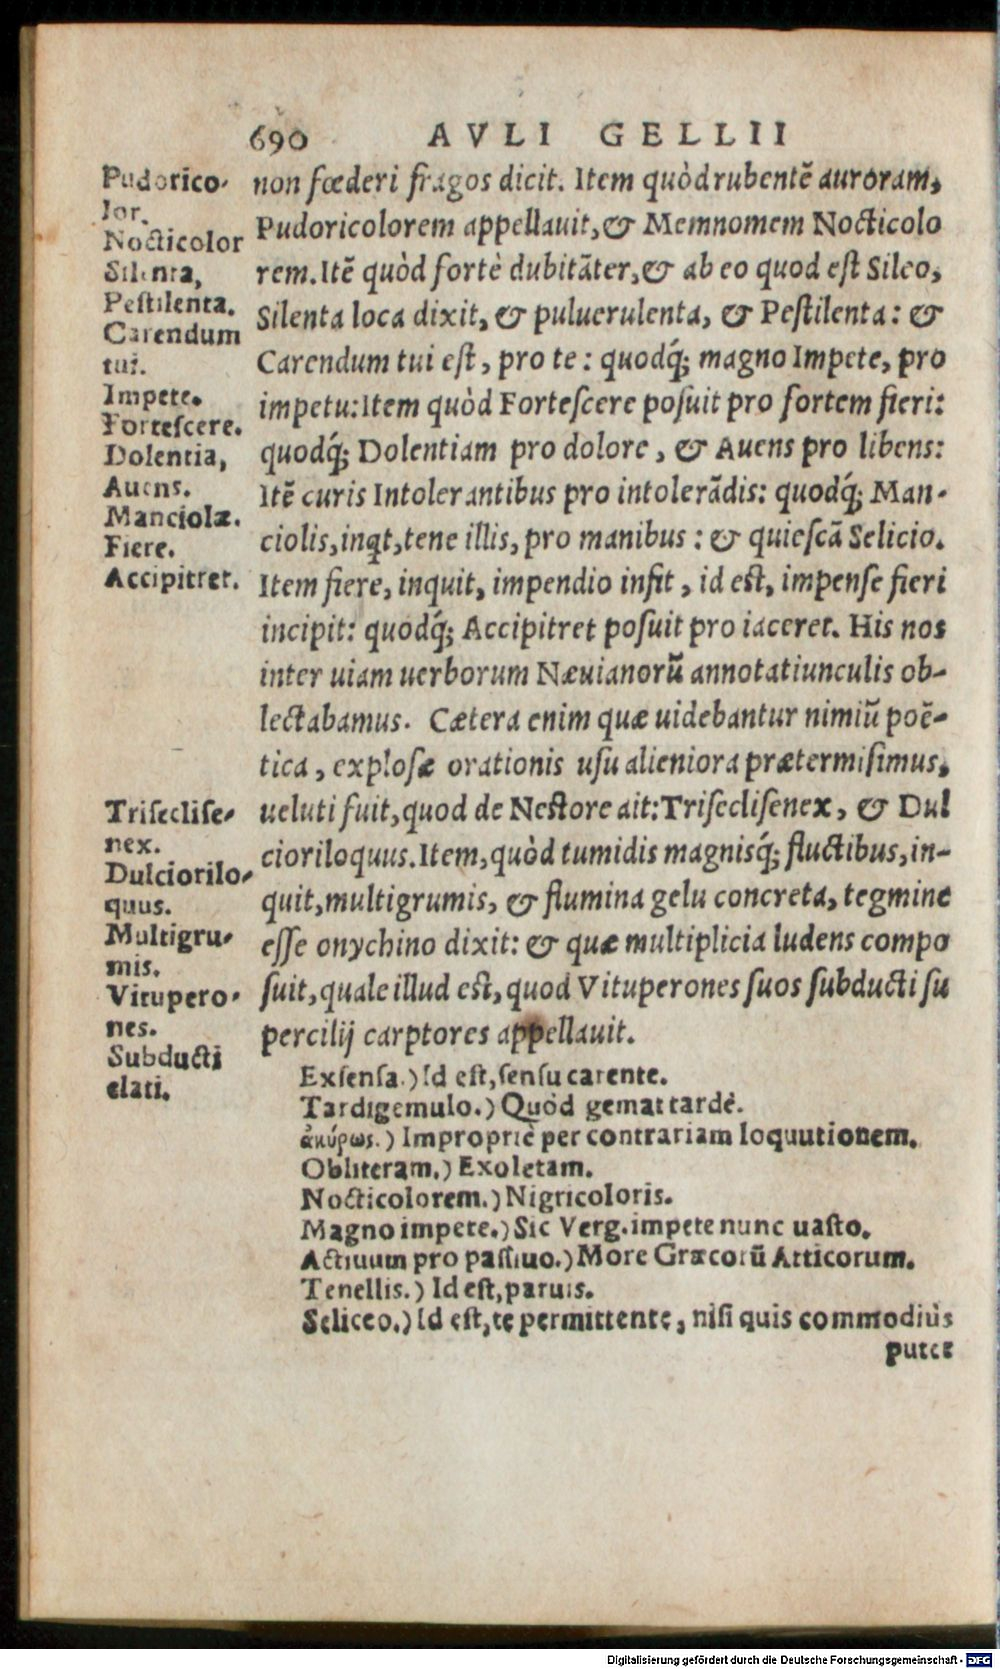 690 AVLI GELLII
Pudorico-
lor.
Nocticolor
Silenta,
Pestilenta.
Carendum
tui.
Impete.
Fortescere.
Dolentia,
Auens.
Manciolæ.
Fiere.
Accipitret.
Triseclise-
nex.
Dulciorilo-
quus.
Multigru-
mis.
Vitupero-
nes.
Subducti
elati.
non fœderi fragos dicit. Item quòd rubentẽ auroram,
Pudoricolorem appellauit, & Memnomem Nocticolo
rem. Itẽ quòd fortè dubitãter, & ab eo quod est Sileo,
Silenta loca dixit, & puluerulenta, & Pestilenta: &
Carendum tui est, pro te: quodq́; magno Impete, pro
impetu: Item quòd Fortescere posuit pro fortem fieri:
quodq́; Dolentiam pro dolore, & Auens pro libens:
Itẽ curis Intolerantibus pro intolerãdis: quodq́; Man-
ciolis, inqt, tene illis, pro manibus: & quiescã Selicio.
Item fiere, inquit, impendio infit, id est, impense fieri
incipit: quodq́; Accipitret posuit pro iaceret. His nos
inter uiam uerborum Næuianorũ annotatiunculis ob-
lectabamus. Cætera enim quæ uidebantur nimiũ poë-
tica, explosæ orationis usu alieniora prætermisimus,
ueluti fuit, quod de Nestore ait: Triseclisenex, & Dul
cioriloquus. Item, quòd tumidis magnisq́; fluctibus, in-
quit, multigrumis, & flumina gelu concreta, tegmine
esse onychino dixit: & quæ multiplicia ludens compo
suit, quale illud est, quod Vituperones suos subducti su
percilij carptores appellauit.
Exsensa.) Id est, sensu carente.
Tardigemulo.) Quòd gemat tardè.
ἀκύρως.) Impropriè per contrariam loquutionem.
Obliteram.) Exoletam.
Nocticolorem.) Nigricoloris.
Magno impete.) Sic Verg. impete nunc uasto.
Actiuum pro passiuo.) More Græcorũ Atticorum.
Tenellis.) Id est, paruis.
Seliceo.) Id est, te permittente, nisi quis commodiùs
putet
Digitalisierung gefördert durch die Deutsche Forschungsgemeinschaft - DFG